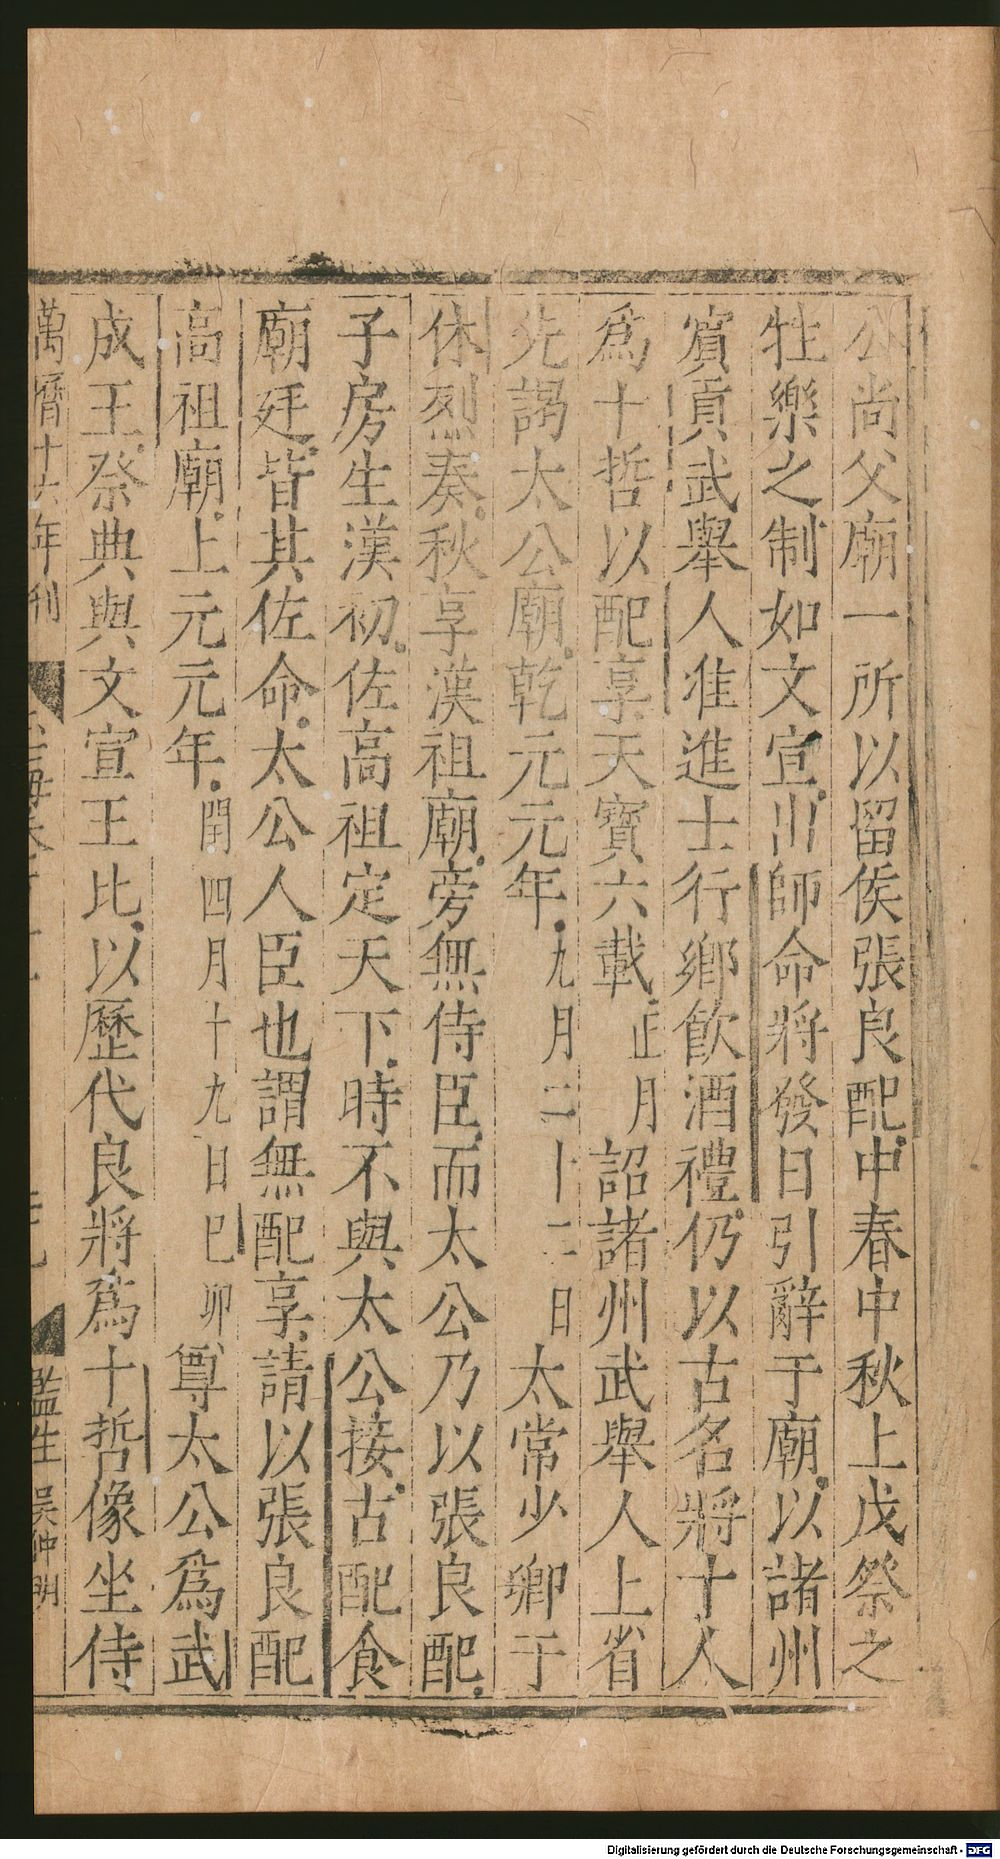 公尚父廟一所以留侯張良配中春中秋上戊祭之
牲樂之制如文宣出師命將發日引辭于廟以諸州
賓貢武舉人准進士行鄉飲酒禮仍以古名將十人
爲十哲以配享天寶六載正月詔諸州武舉人上省
先謁太公廟乾元元年九月二十二日太常少卿于
休烈奏秋享漢祖廟旁無侍臣而太公乃以張良配
子房生漢初佐高祖定天下時不與太公接古配食
廟廷皆其佐命太公人臣也謂無配享請以張良配
高祖廟上元元年閏四月十九日巳卯尊太公爲武
成王祭典與文宣王比以歷代良將爲十哲像坐侍
萬曆十六年刊
監生吳仲明
Digitalisierung gefördert durch die Deutsche Forschungsgemeinschaft - DFG